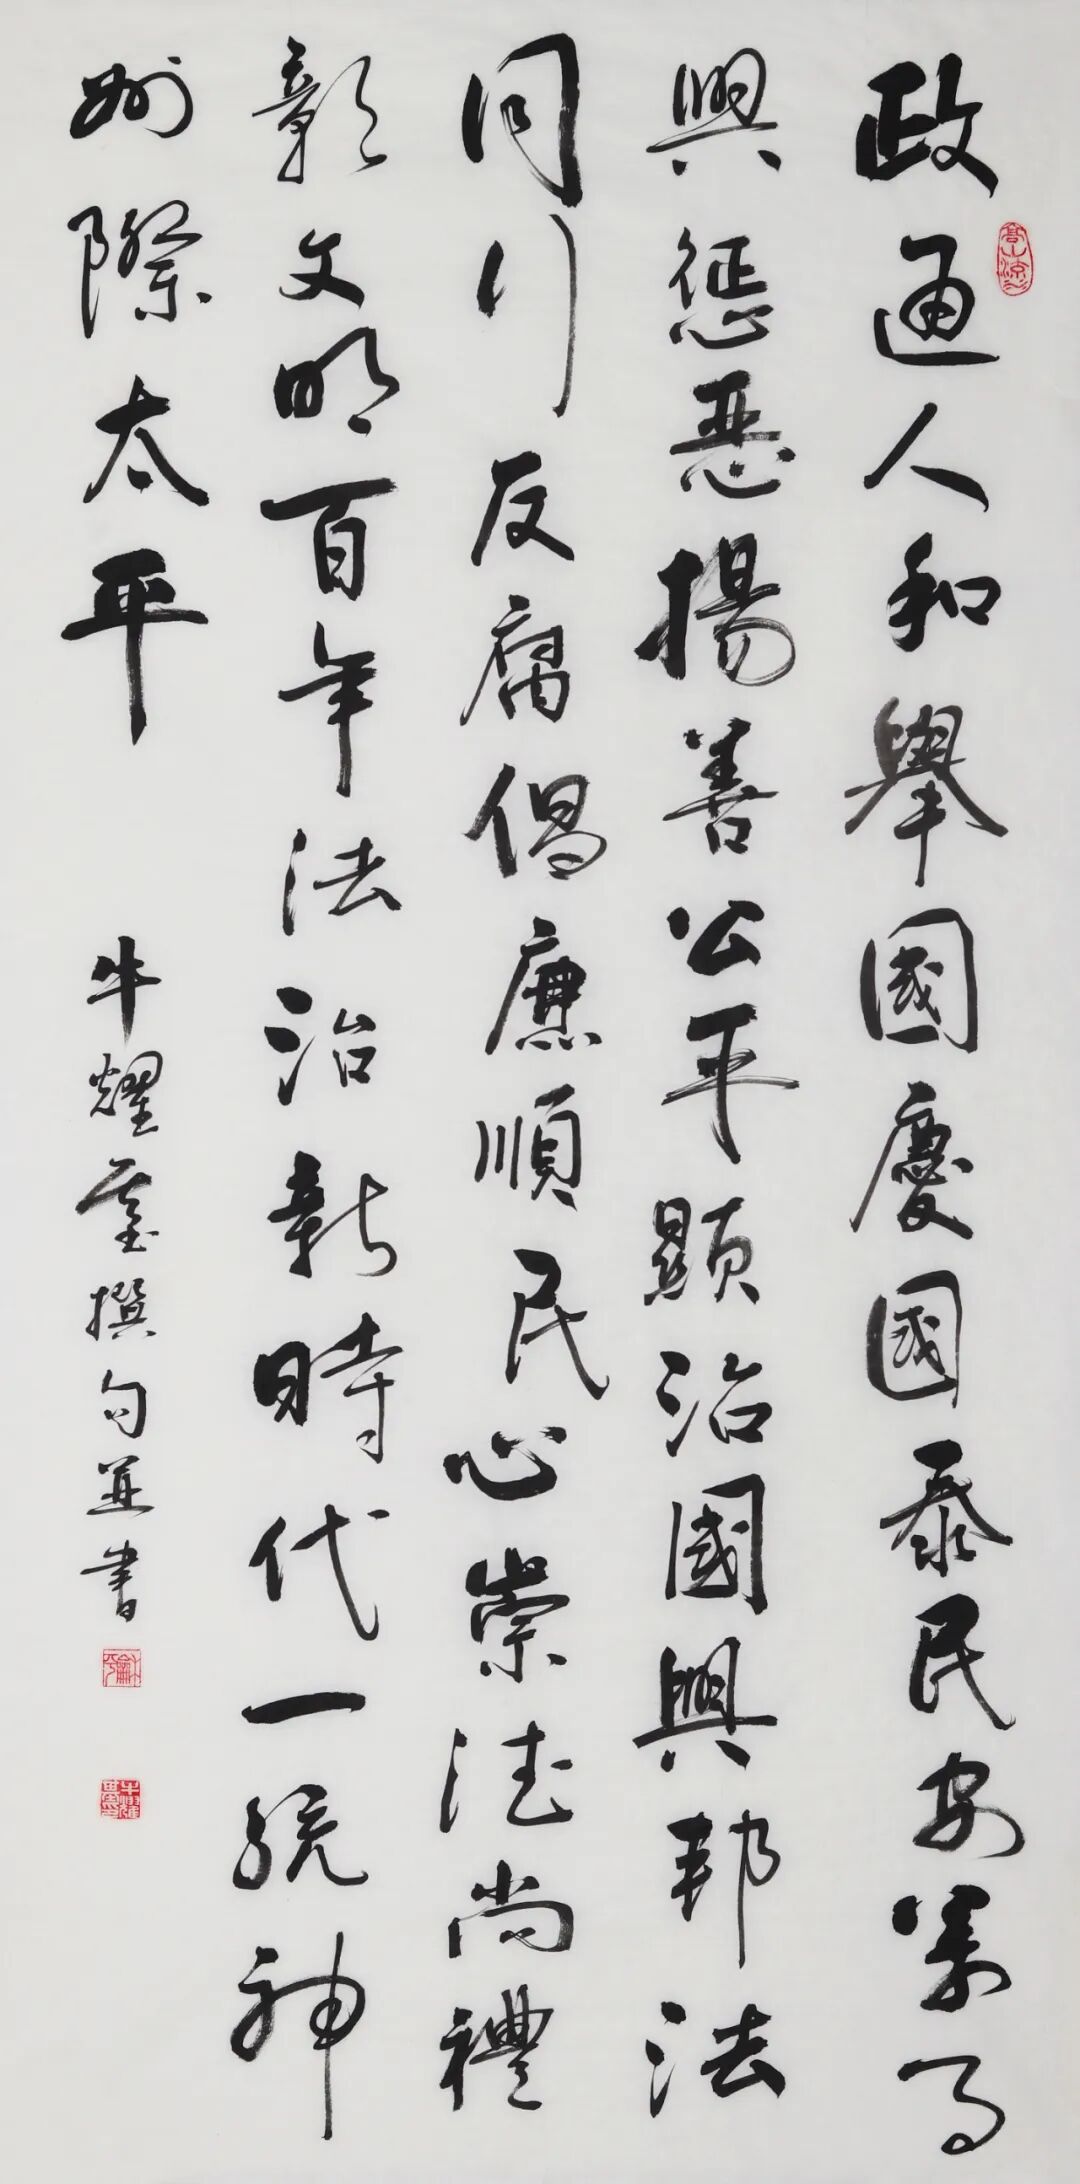 政通人和舉國慶國泰民安萬事
興惩恶揚善公平顯治國興邦法
同行反腐倡廉順民心崇德尚禮
彰文明百年法治新時代一統神
州際太平
牛耀撰句並書